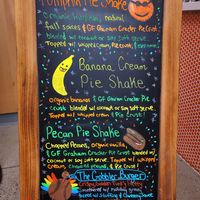 Pumpkin Pie Shake
Organic Pumpkin, natural
fall spices & GF Graham Cracker Pie Crust
blended w/ coconut or soy soft serve.
Topped w/ whipped cream, Pie Crust,
Banana Cream
Pie Shake
organic bananas & GF Graham Cracker Pie
crust blended w/ coconut or soy soft serve.
Topped w/ whipped cream, & Pie Crust!
Pecan Pie Shake
Chopped Pecans, vanilla
& GF Graham Cracker Pie Crust blended w/
coconut or soy soft serve. Topped w/ whipped
cream, chopped pecans, & Pie Crust!
The Gobbler Burger
Crispy